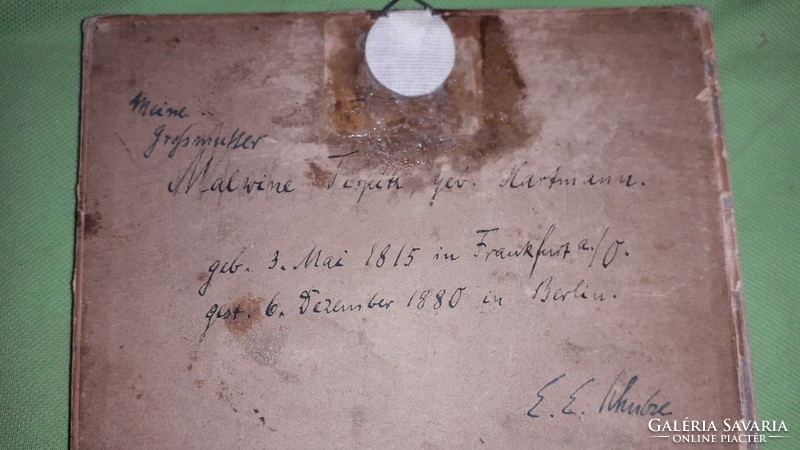 Meine
Großmutter
Malwine geb. Hartmann.
geb. 3. Mai 1815 in Frankfurt a/O.
gest. 6. Dezember 1880 in Berlin.
E. E. Schulze
GALÉRIA SAVARIA
ONLINE PIACTÉR